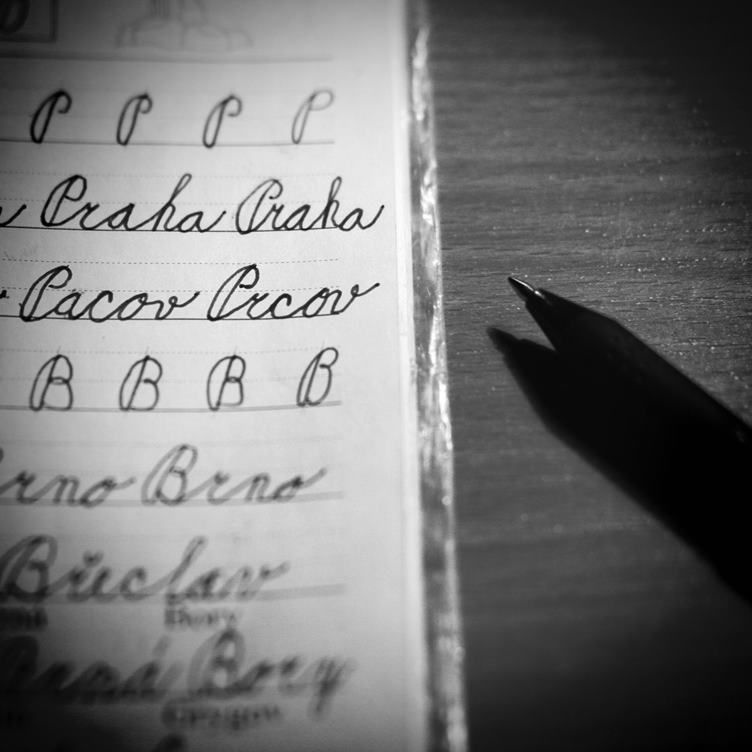 P P P P
Praha Praha
Pacov Prcov
B B B B
Brno Brno
Břeclav
Bory
Bory